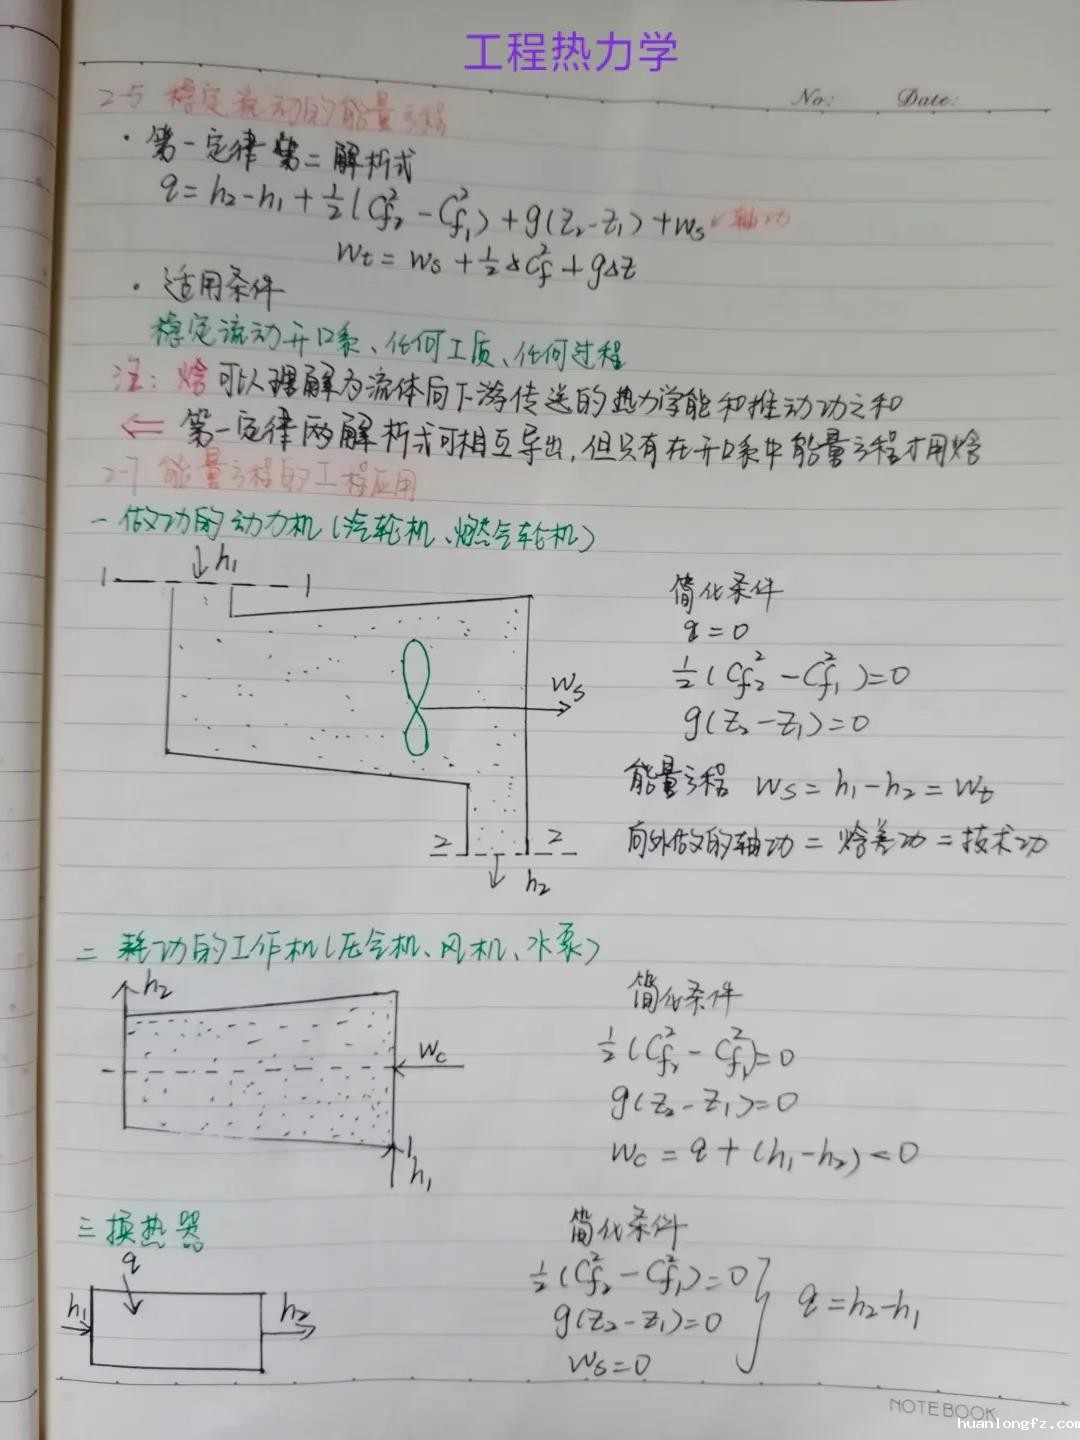 工程热力学
No: Date:
2-5 稳定流动的能量方程
· 第一定律第二解析式
q=h₂-h₁+½(C²f₂-C²f₁)+g(Z₂-Z₁)+Ws ↙轴功
Wt=Ws+½ΔC²f+gΔZ
· 适用条件
稳定流动开口系、任何工质、任何过程
注:焓可以理解为流体向下游传送的热力学能和推动功之和
⇐ 第一定律两解析式可相互导出,但只有在开口系中能量方程才用焓
2-7 能量方程的工程应用
一 做功的动力机(汽轮机、燃气轮机)
h₁
1 1
Ws
2 2
h₂
简化条件
q=0
½(Cf₂²-Cf₁²)=0
g(Z₂-Z₁)=0
能量方程 Ws=h₁-h₂=Wt
向外做的轴功=焓差功=技术功
二 耗功的工作机(压气机、风机、水泵)
h₂
Wc
h₁
简化条件
½(Cf₂²-Cf₁²)=0
g(Z₂-Z₁)=0
Wc=q+(h₁-h₂)<0
三 换热器
q
h₁
h₂
简化条件
½(Cf₂²-Cf₁²)=0
g(Z₂-Z₁)=0
Ws=0
q=h₂-h₁
NOTEBOOK
huanlongfz.com